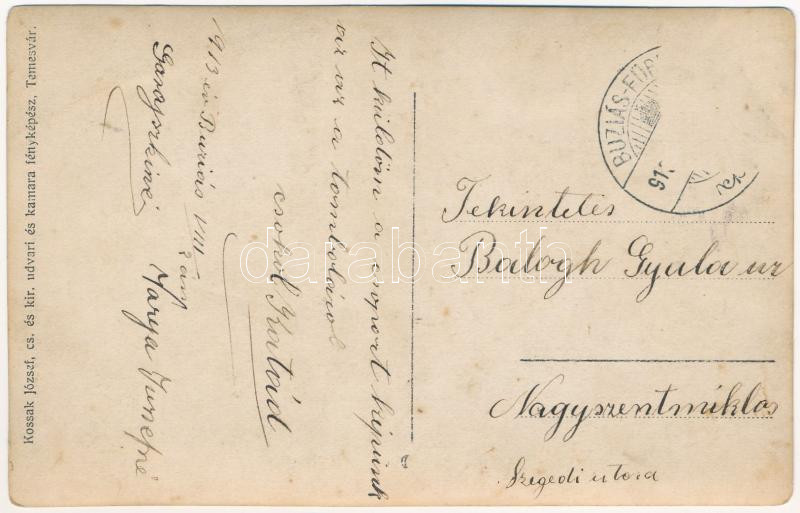 Kossak József, cs. és kir. udvari és kamara fényképész, Temesvár.
Itt küldöm a csoport képünk
az a tomboláról
csókol Katád
1913 év Buziás VIII
Varga
BUZIÁS-FÜR
913
Tekintetes
Balogh Gyula ur
Nagyszentmiklós
Szegedi utca
darabanth